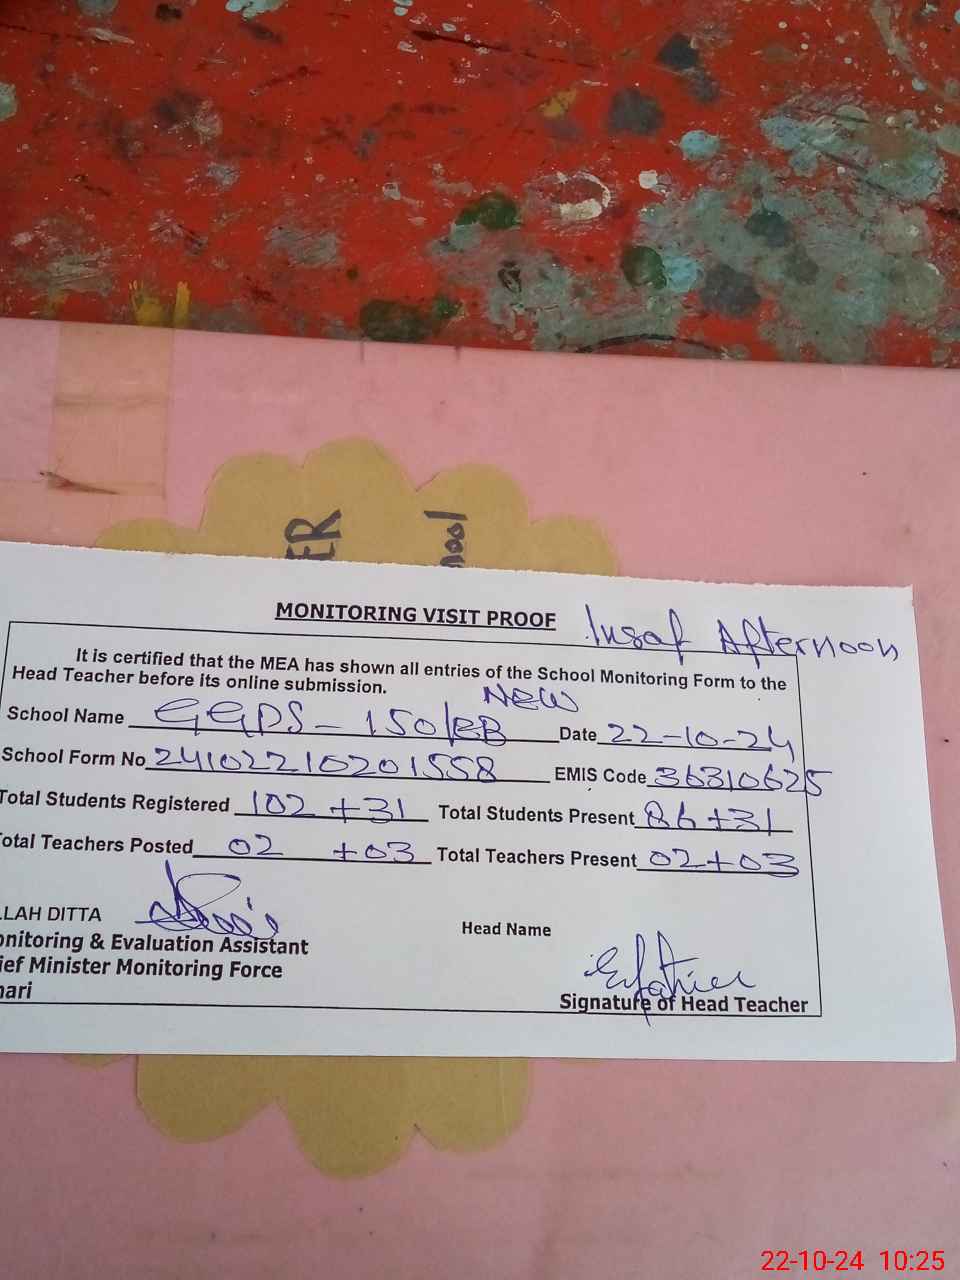 ER
hool
MONITORING VISIT PROOF Insaf Afternoon
It is certified that the MEA has shown all entries of the School Monitoring Form to the
Head Teacher before its online submission.
NEW
School Name GGPS - 150/EB Date 22-10-24
School Form No 24102210201558 EMIS Code 36310625
Total Students Registered 102 +31 Total Students Present 86+31
Total Teachers Posted 02 +03 Total Teachers Present 02+03
LLAH DITTA
onitoring & Evaluation Assistant Head Name
ief Minister Monitoring Force
hari Signature of Head Teacher
22-10-24 10:25